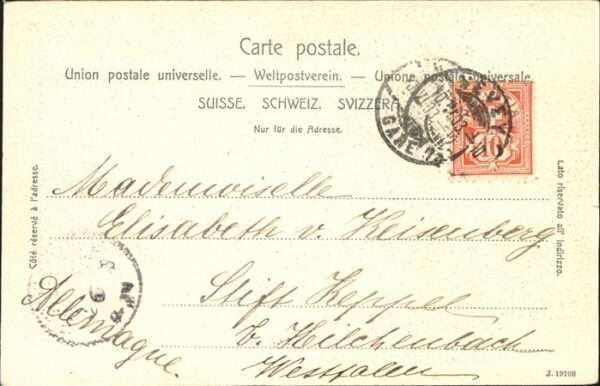 Carte postale.
Union postale universelle. — Weltpostverein. — Unione postale universale
SUISSE. SCHWEIZ. SVIZZERA.
Nur für die Adresse.
VEVEY
GARE
10
Côté réservé à l'adresse.
Lato riservato all' indirizzo.
Mademoiselle
Elisabeth v. Heisenberg
Stift Keppel
b. Hilchenbach
Westfalen
Allemagne.
J. 19708